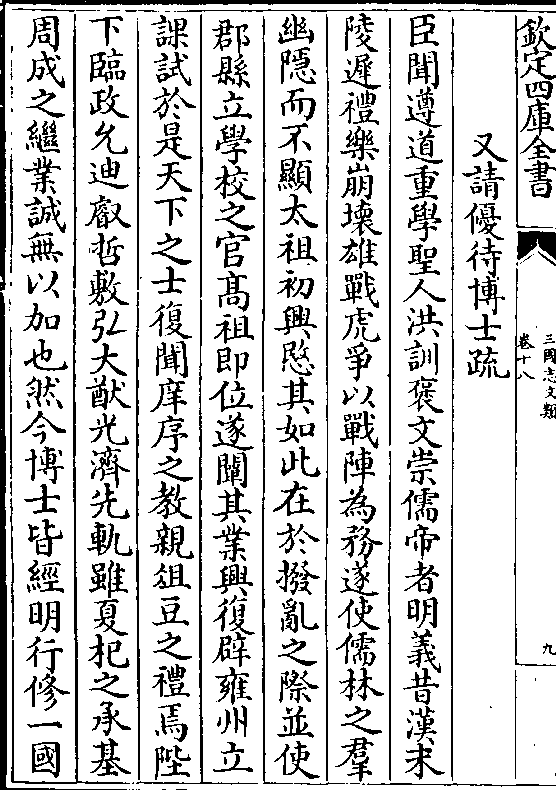 欽定四庫全書
三國志文類
卷十八
九
又請優待博士疏
臣聞遵道重學聖人洪訓褒文崇儒帝者明義昔漢末
陵遲禮樂崩壞雄戰虎爭以戰陣為務遂使儒林之羣
幽隱而不顯太祖初興愍其如此在於撥亂之際並使
郡縣立學校之官髙祖即位遂闡其業興復辟雍州立
課試於是天下之士復聞庠序之教親俎豆之禮焉陛
下臨政允迪叡哲敷弘大猷光濟先軌雖夏杞之承基
周成之繼業誠無以加也然今博士皆經明行修一國